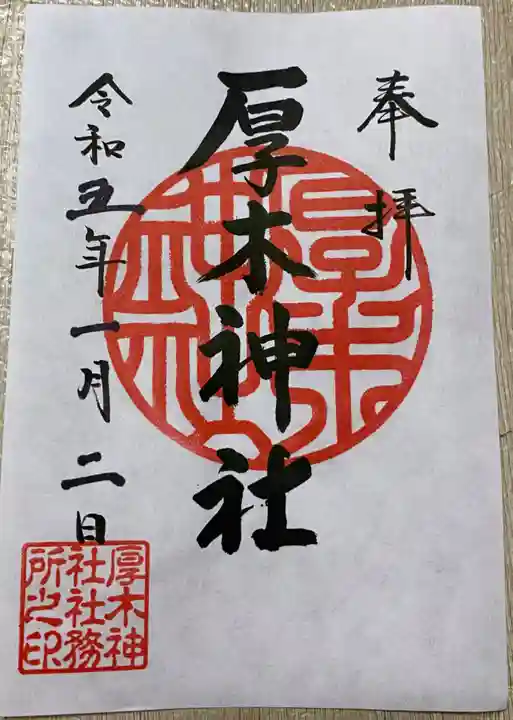 奉拝
厚木神社
令和五年一月二日
厚木神
社社務
所之印